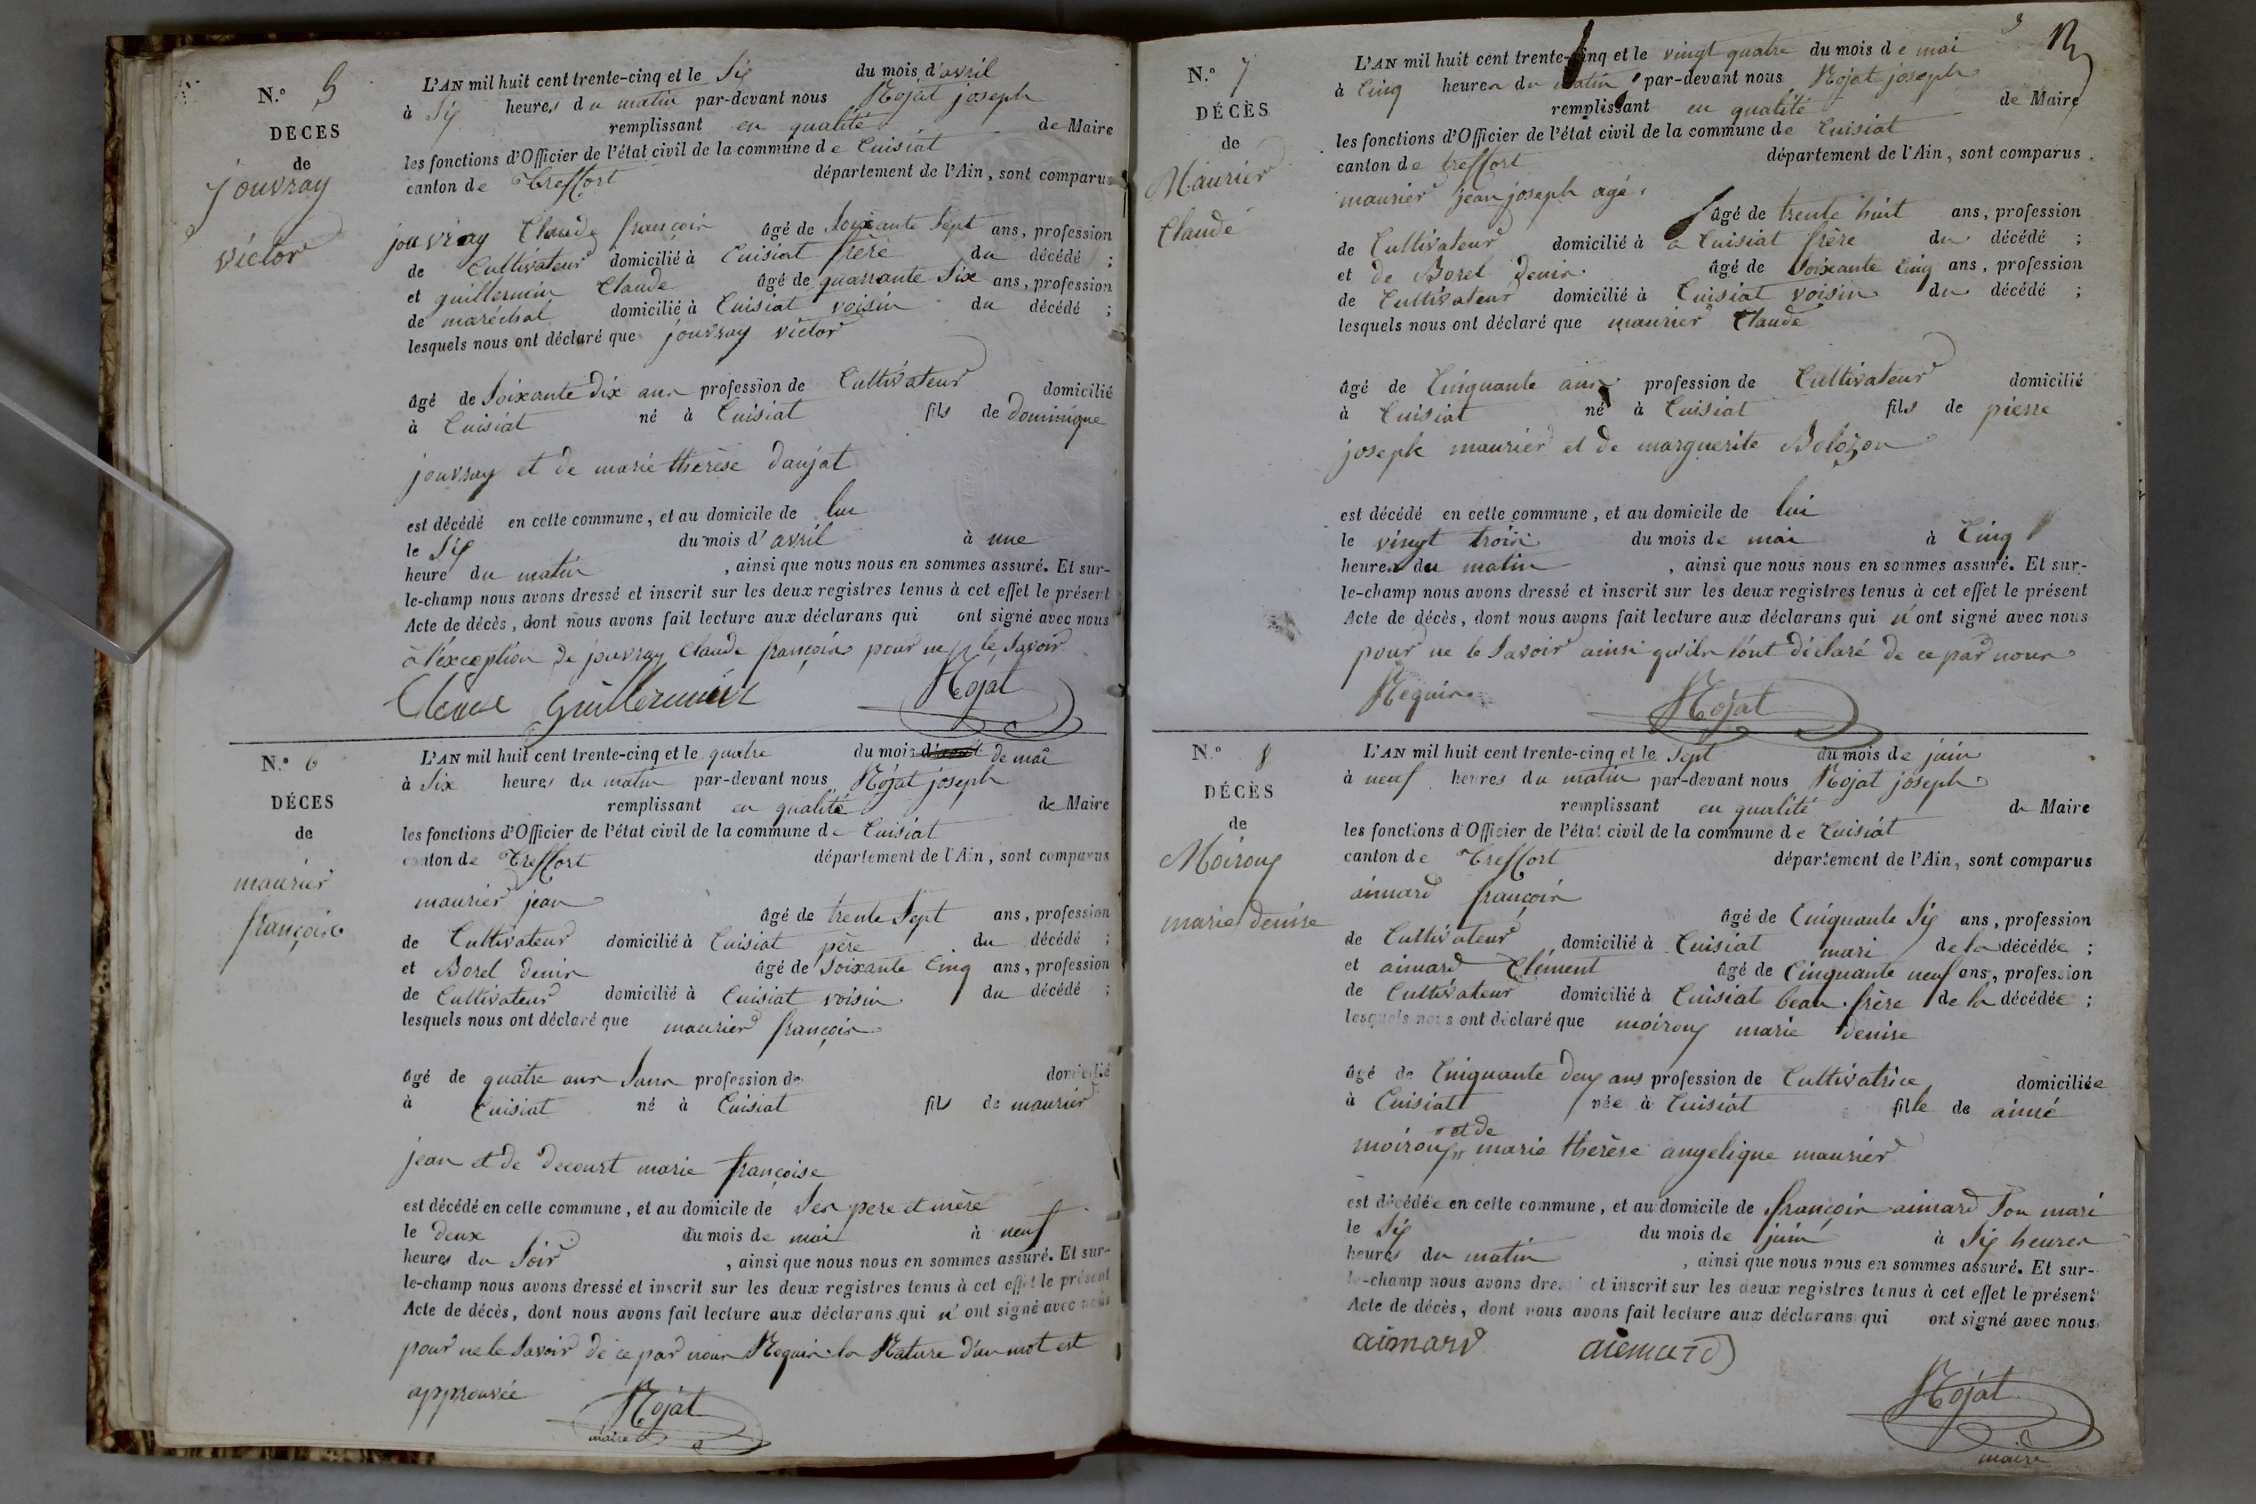 N.° 5
DÉCES
de
jouvray
victor
L'AN mil huit cent trente-cinq et le Six du mois d'avril
à Six heures du matin par-devant nous Rojat joseph
remplissant en qualité de Maire
les fonctions d'Officier de l'état civil de la commune de Cuisiat
canton de Treffort département de l'Ain, sont comparus
jouvray Claude françois âgé de Soixante Sept ans, profession
de Cultivateur domicilié à Cuisiat frère du décédé ;
et guillermin Claude âgé de quarrante Six ans, profession
de maréchal domicilié à Cuisiat voisin du décédé ;
lesquels nous ont déclaré que jouvray victor
âgé de Soixante dix ans profession de Cultivateur domicilié
à Cuisiat né à Cuisiat fils de dominique
jouvray et de marie thérèse daujat
est décédé en cette commune, et au domicile de lui
le Six du mois d'avril à une
heure du matin , ainsi que nous nous en sommes assuré. Et sur-
le-champ nous avons dressé et inscrit sur les deux registres tenus à cet effet le présent
Acte de décès, dont nous avons fait lecture aux déclarans qui ont signé avec nous
à l'éxception de jouvray Claude françois pour ne le Savoir
Claude Guillermin Rojat
N.° 6
DÉCES
de
maurier
françois
L'AN mil huit cent trente-cinq et le quatre du mois d'avril de mai
à Six heures du matin par-devant nous Rojat joseph
remplissant en qualité de Maire
les fonctions d'Officier de l'état civil de la commune de Cuisiat
canton de Treffort département de l'Ain, sont comparus
maurier jean
âgé de trente Sept ans, profession
de Cultivateur domicilié à Cuisiat père du décédé ;
et Borel denis âgé de Soixante Cinq ans, profession
de Cultivateur domicilié à Cuisiat voisin du décédé ;
lesquels nous ont déclaré que maurier françois
âgé de quatre ans Sans profession de domicilié
à Cuisiat né à Cuisiat fils de maurier
jean et de decourt marie françoise
est décédé en cette commune, et au domicile de Ses pere et mère
le deux du mois de mai à neuf
heures du Soir , ainsi que nous nous en sommes assuré. Et sur-
le-champ nous avons dressé et inscrit sur les deux registres tenus à cet effet le présent
Acte de décès, dont nous avons fait lecture aux déclarans qui n'ont signé avec nous
pour ne le Savoir de ce par nous Requis la Rature d'un mot est
approuvée Rojat
maire
3
N.° 7
DÉCÈS
de
Maurier
Claude
L'AN mil huit cent trente-cinq et le vingt quatre du mois de mai
à Cinq heures du matin par-devant nous Rojat joseph
remplissant en qualité de Maire
les fonctions d'Officier de l'état civil de la commune de Cuisiat
canton de treffort département de l'Ain, sont comparus
maurier jean joseph agé
âgé de trente huit ans, profession
de Cultivateur domicilié à a Cuisiat frère du décédé ;
et de Borel denis âgé de Soixante Cinq ans, profession
de Cultivateur domicilié à Cuisiat voisin du décédé ;
lesquels nous ont déclaré que maurier Claude
âgé de Cinquante ans profession de Cultivateur domicilié
à Cuisiat né à Cuisiat fils de pierre
joseph maurier et de marguerite Bolozon
est décédé en cette commune, et au domicile de lui
le vingt trois du mois de mai à Cinq
heures du matin , ainsi que nous nous en sommes assuré. Et sur-
le-champ nous avons dressé et inscrit sur les deux registres tenus à cet effet le présent
Acte de décès, dont nous avons fait lecture aux déclarans qui n'ont signé avec nous
pour ne le Savoir ainsi qu'ils l'ont déclaré de ce par nous
Requis Rojat
N.° 8
DÉCÈS
de
Moiroux
marie denise
L'AN mil huit cent trente-cinq et le Sept du mois de juin
à neuf heures du matin par-devant nous Rojat joseph
remplissant en qualité de Maire
les fonctions d'Officier de l'état civil de la commune de Cuisiat
canton de Treffort département de l'Ain, sont comparus
aimard françois
âgé de Cinquante Six ans, profession
de Cultivateur domicilié à Cuisiat mari de la décédée ;
et aimard Clément âgé de Cinquante neuf ans, profession
de Cultivateur domicilié à Cuisiat beau-frère de la décédée ;
lesquels nous ont déclaré que moiroux marie denise
âgé de Cinquante deux ans profession de Cultivatrice domiciliée
à Cuisiat née à Cuisiat fille de aimé
moiroux et de marie thérèse angelique maurier
est décédée en cette commune, et au domicile de françois aimard Son mari
le Six du mois de juin à Six heures
heures du matin , ainsi que nous nous en sommes assuré. Et sur-
le-champ nous avons dressé et inscrit sur les deux registres tenus à cet effet le présent
Acte de décès, dont nous avons fait lecture aux déclarans qui ont signé avec nous
aimard aiemard
Rojat
maire